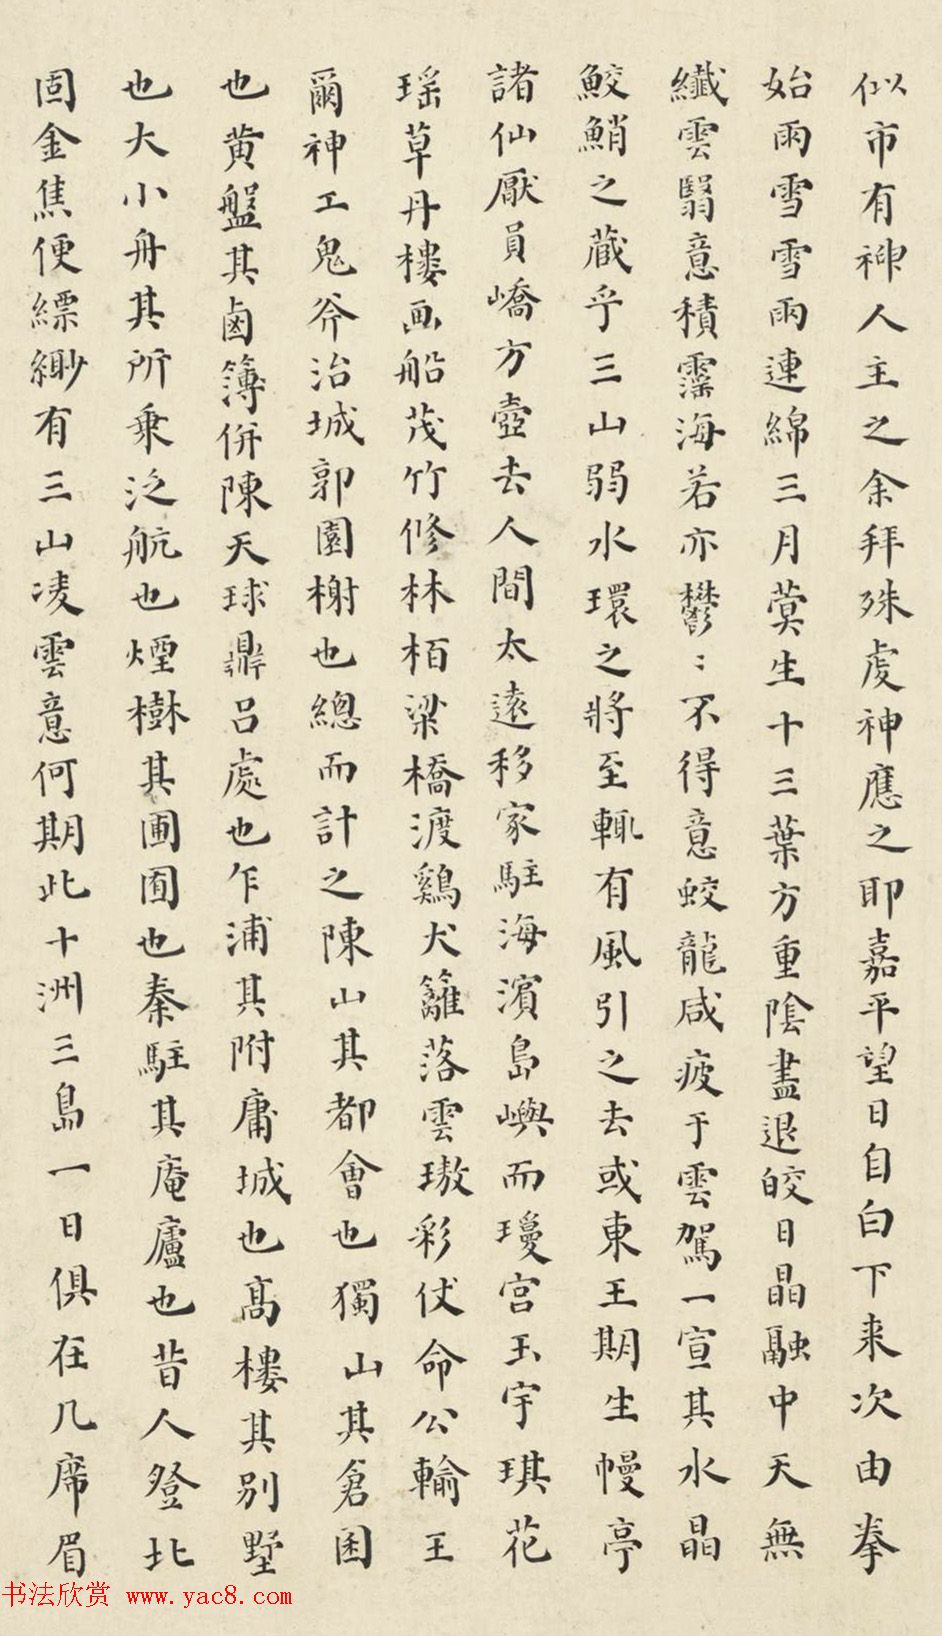 似市有禆人主之余拜殊虔神應之耶嘉平望日自白下来次由拳
始雨雪雪雨連綿三月蓂生十三葉方重陰盡退皎日晶融中天無
纖雲翳意積霪海若亦欝〻不得意蛟龍咸疲于雲駕一宣其水晶
鮫鮹之蔵乎三山弱水環之將至輒有風引之去或東王期生幔亭
諸仙厭員嶠方壺去人間太遠移家駐海濱島嶼而瓊宫玉宇琪花
瑶草丹樓画船茂竹修林栢梁橋渡鷄犬籬落雲璈彩仗命公輸王
爾神工鬼斧治城郭園榭也總而計之陳山其都會也獨山其倉囷
也黄盤其鹵簿併陳天球鼎吕處也乍浦其附庸城也髙樓其别墅
也大小舟其所乗泛航也煙樹其圃囿也秦駐其庵廬也昔人登北
固金焦便縹緲有三山凌雲意何期此十洲三島一日俱在几席眉
书法欣赏 www.yac8.com